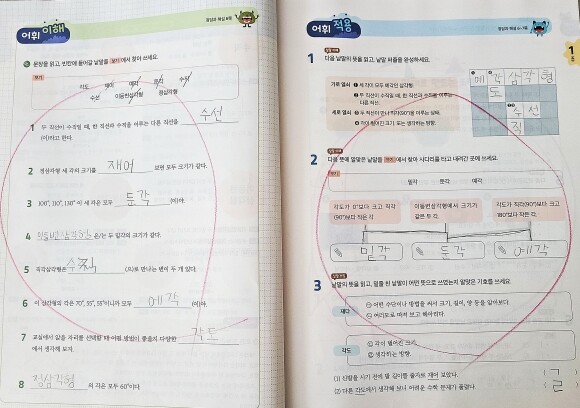 어휘 이해
문장을 읽고, 빈칸에 들어갈 낱말을 보기에서 찾아 쓰세요.
보기
각도 예각 둔각 수직
수선 이등변삼각형 정삼각형
1 두 직선이 수직일 때, 한 직선과 수직을 이루는 다른 직선을 수선
(이)라고 한다.
2 정삼각형 세 각의 크기를 재어 보면 모두 크기가 같다.
3 100°, 110°, 130°이 세 각은 모두 둔각 (이)야.
4 이등변삼각형 은/는 두 밑각의 크기가 같다.
5 직각삼각형은 수직 (으)로 만나는 변이 두 개 있다.
6 이 삼각형의 각은 70°, 55°, 55°이니까 모두 예각 (이)야.
7 교실에서 앉을 자리를 선택할 때 어떤 방법이 좋을지 다양한 각도
에서 생각해 보자.
8 정삼각형 의 각은 모두 60°이다.
어휘 적용
1 다음 낱말의 뜻을 읽고, 낱말 퍼즐을 완성하세요.
가로 열쇠 ❶ 세 각이 모두 예각인 삼각형.
❷ 두 직선이 수직일 때, 한 직선과 수직을 이루는
다른 직선.
세로 열쇠 ❶ 두 직선이 만나 직각(90°)을 이루는 상태.
❷ 각이 벌어진 크기 또는 생각하는 방향.
예각삼각형
도
수선
직
2 다음 뜻에 알맞은 낱말을 보기에서 찾아 사다리를 타고 내려간 곳에 쓰세요.
보기
밑각 둔각 예각
각도가 0°보다 크고 직각 이등변삼각형에서 크기가 각도가 직각(90°)보다 크고
(90°)보다 작은 각. 같은 두 각. 180°보다 작은 각.
밑각 둔각 예각
3 낱말의 뜻을 읽고, 밑줄 친 낱말이 어떤 뜻으로 쓰였는지 알맞은 기호를 쓰세요.
재다 ㉠ 어떤 수단이나 방법을 써서 크기, 길이, 양 등을 알아보다.
㉡ 여러모로 따져 보고 헤아리다.
각도 ㉠ 각이 벌어진 크기.
㉡ 생각하는 방향.
(1) 신발을 사기 전에 발 길이를 줄자로 재어 보았다. ㄱ
(2) 다른 각도에서 생각해 보니 어려운 수학 문제가 풀렸다. ㄹ